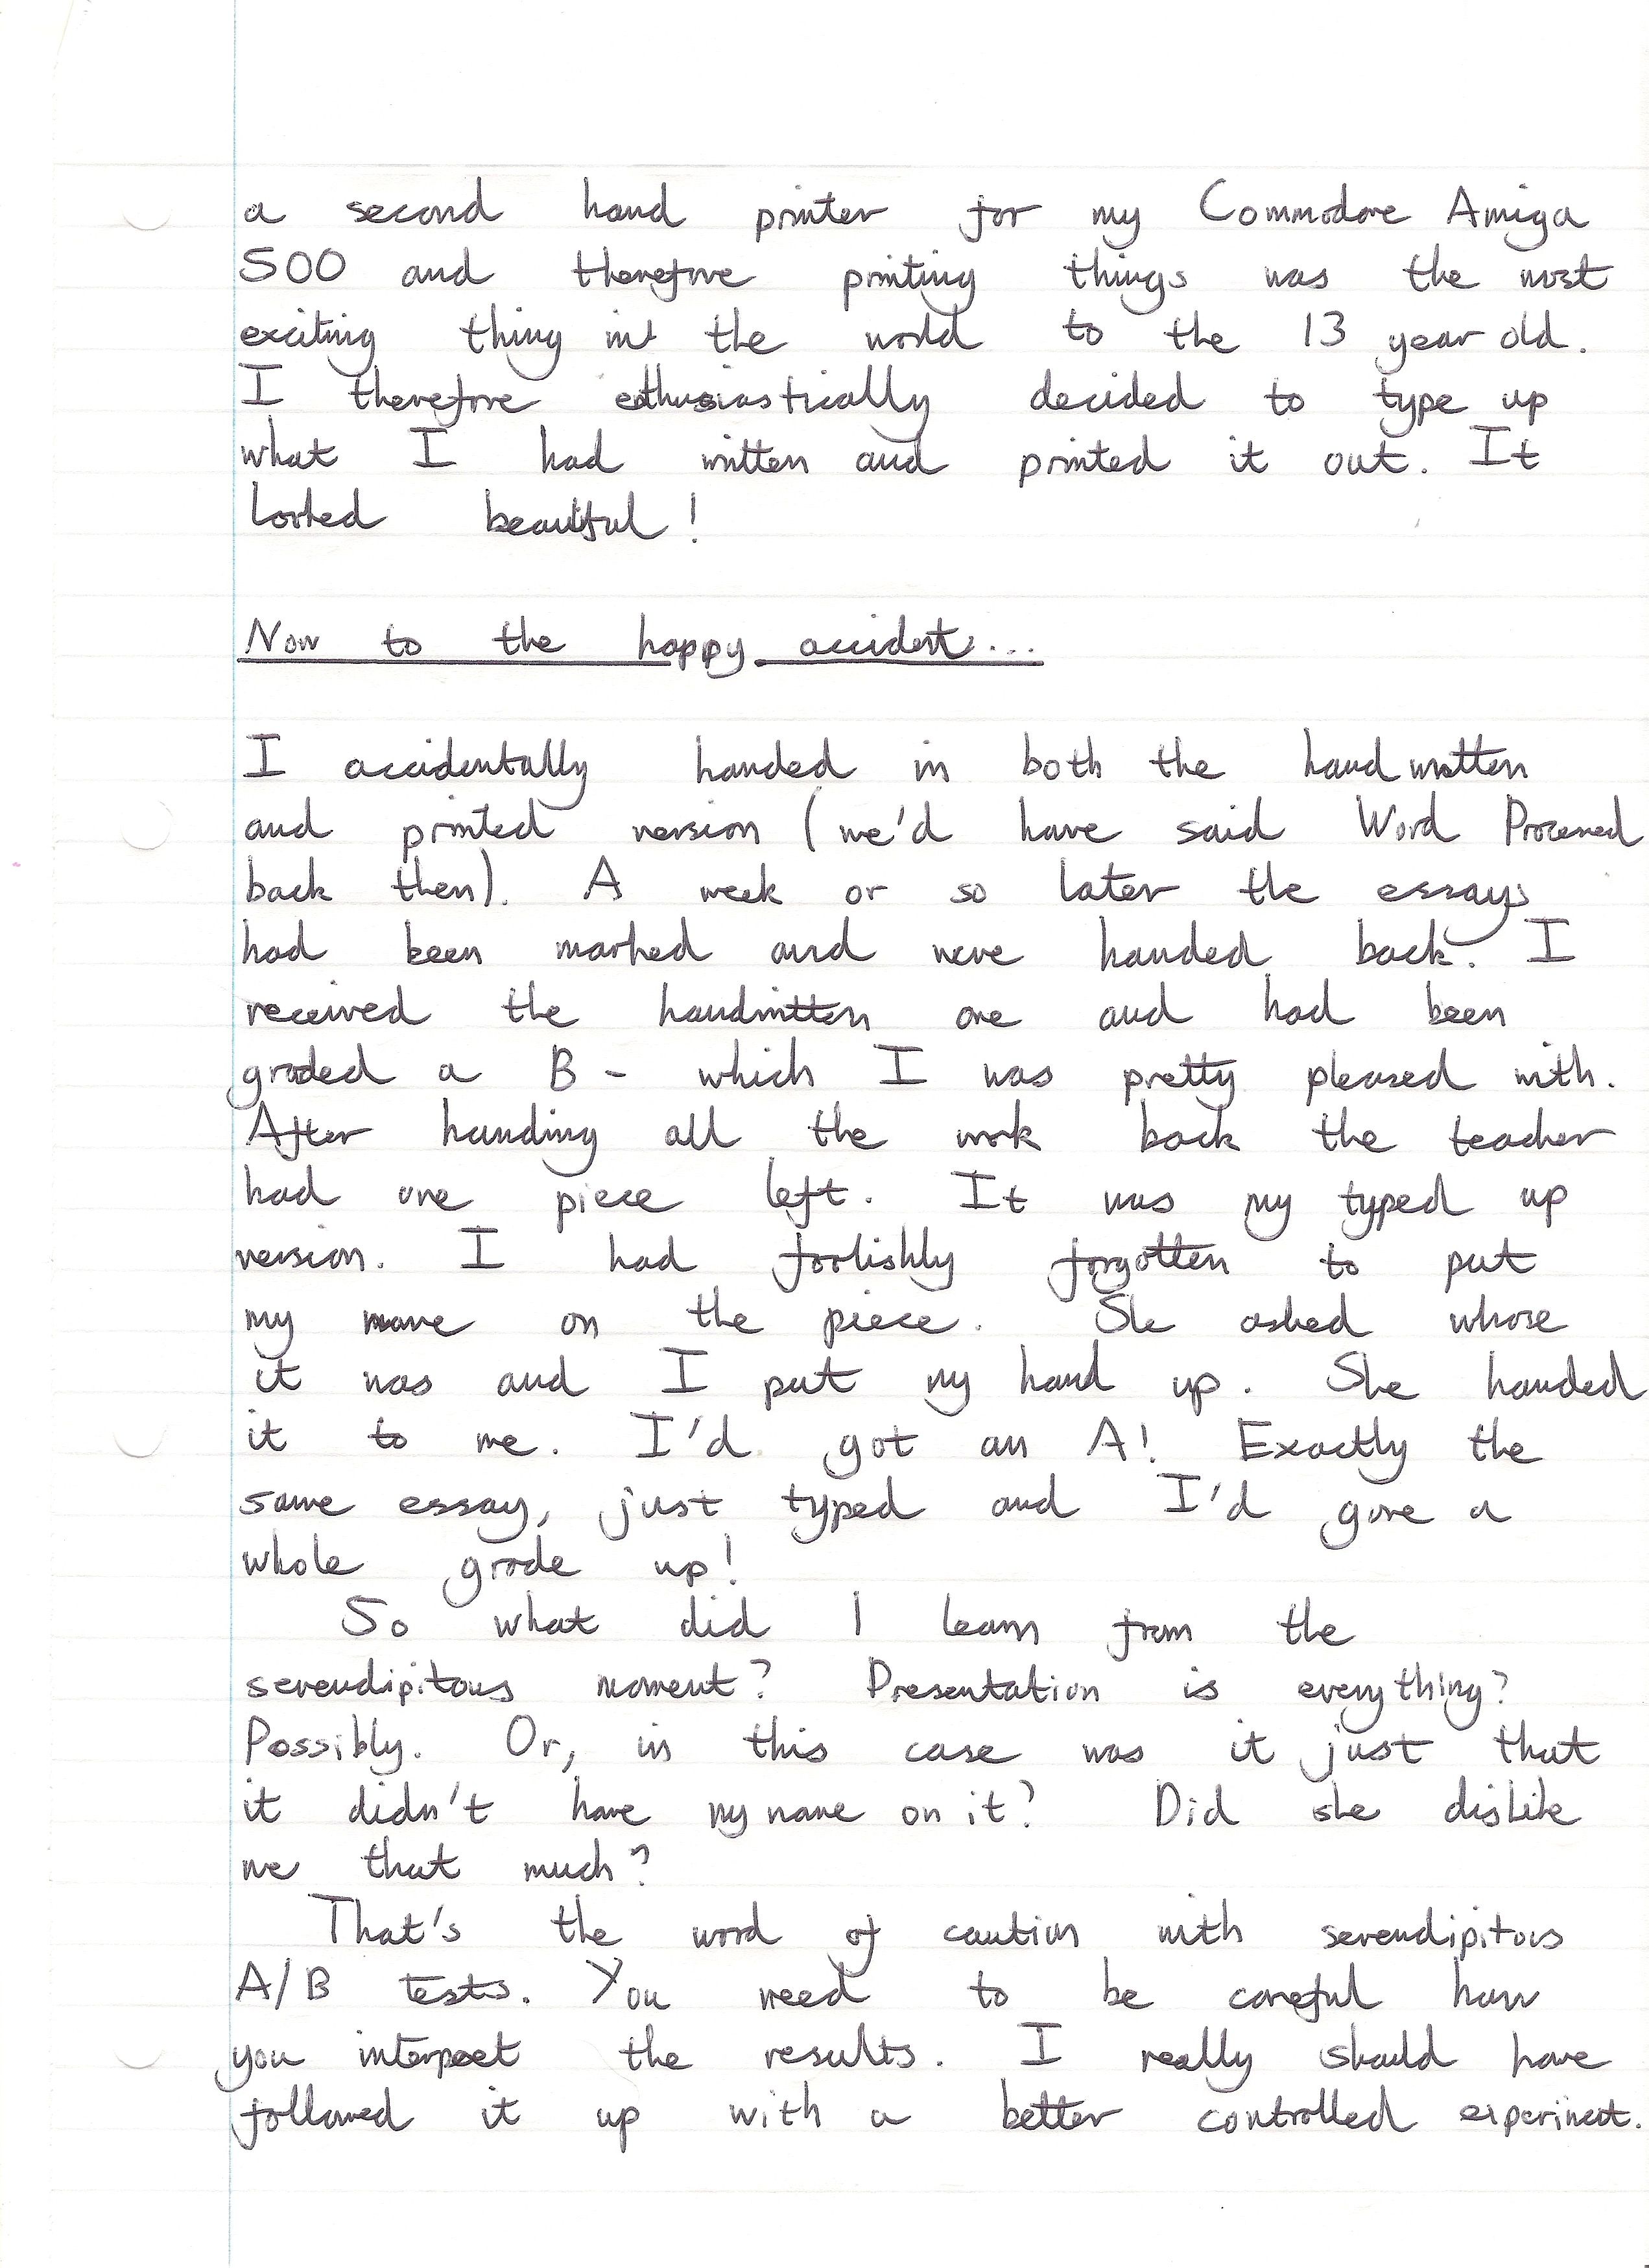 a second hand printer for my Commodore Amiga
500 and therefore printing things was the most
exciting thing in the world to the 13 year old.
I therefore enthusiastically decided to type up
what I had written and printed it out. It
looked beautiful!
Now to the happy accident...
I accidentally handed in both the handwritten
and printed version (we'd have said Word Processed
back then). A week or so later the essays
had been marked and were handed back. I
received the handwritten one and had been
graded a B - which I was pretty pleased with.
After handing all the work back the teacher
had one piece left. It was my typed up
version. I had foolishly forgotten to put
my name on the piece. She asked whose
it was and I put my hand up. She handed
it to me. I'd got an A! Exactly the
same essay, just typed and I'd gone a
whole grade up!
So what did I learn from the
serendipitous moment? Presentation is everything?
Possibly. Or, in this case was it just that
it didn't have my name on it? Did she dislike
me that much?
That's the word of caution with serendipitous
A/B tests. You need to be careful how
you interpret the results. I really should have
followed it up with a better controlled experiment.